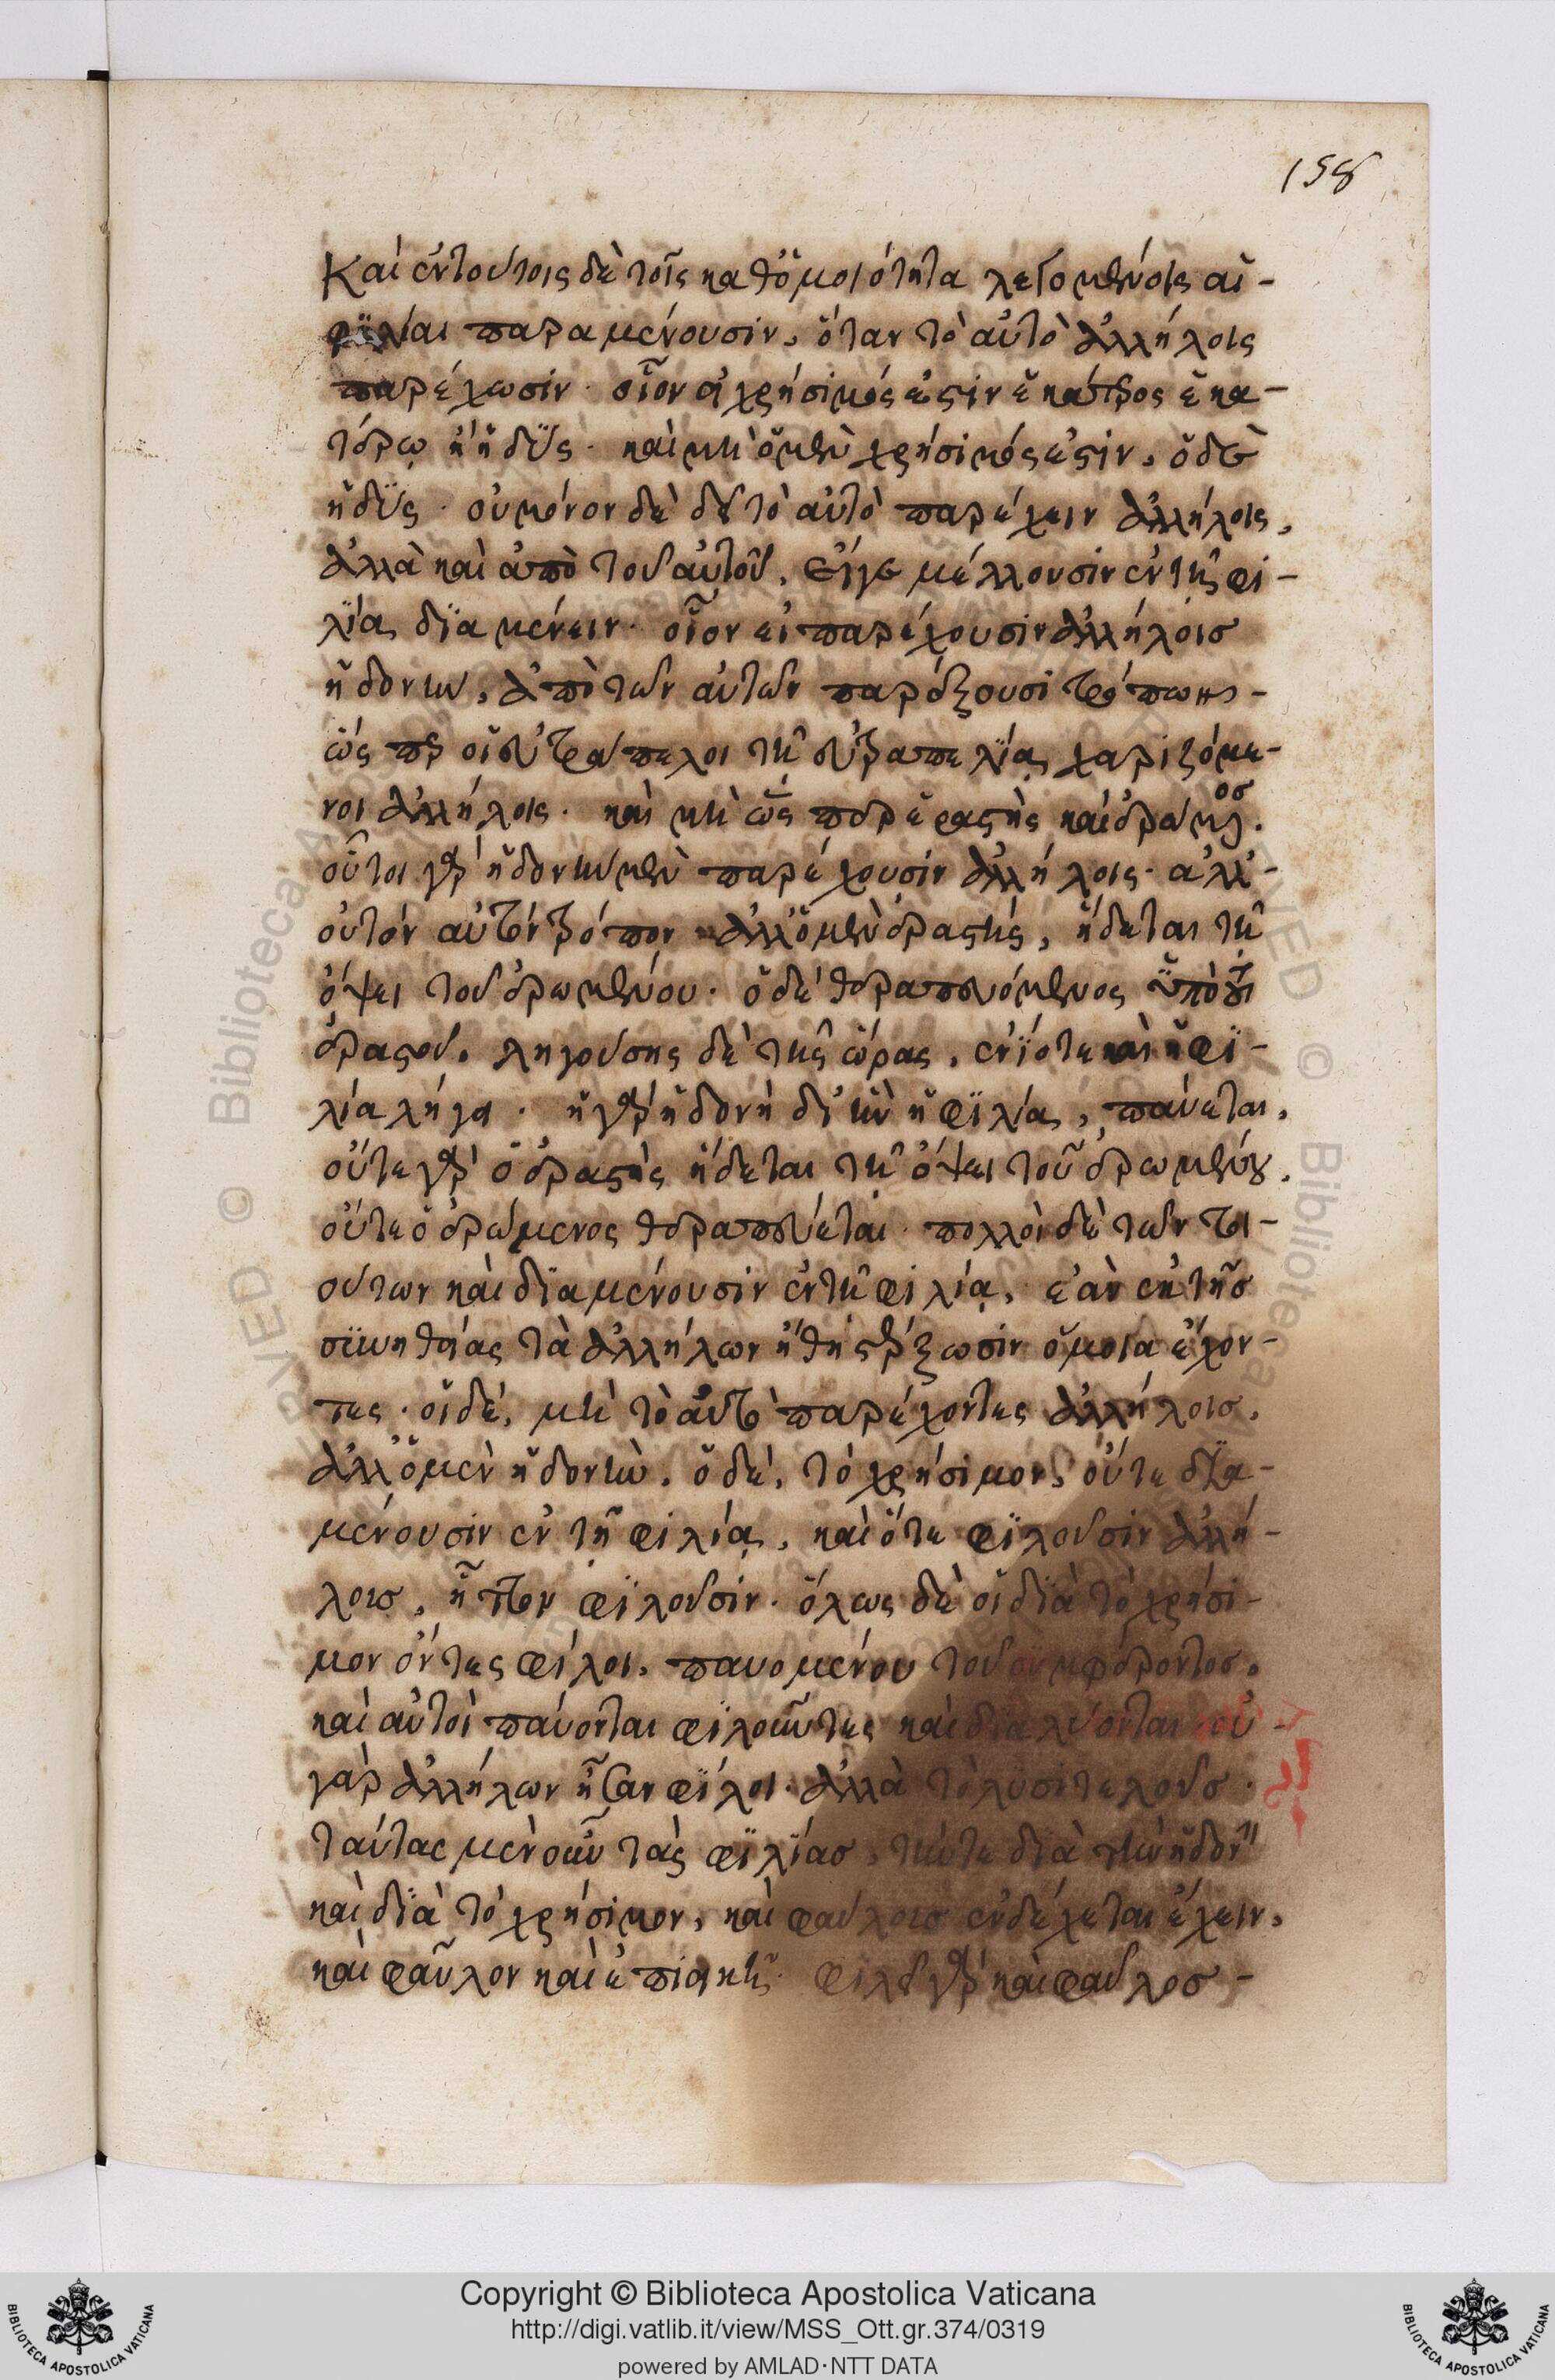 158
Καὶ ἐν τούτοις δὲ τοῖς καθ' ὁμοιότητα λεγομένοις αἱ-
φιλίαι παραμένουσιν, ὅταν τὸ αὐτὸ ἀλλήλοις
παρέχωσιν· οἷον εἰ χρήσιμός ἐστιν ἑκάτερος ἑκα-
τέρῳ ἢ ἡδύς· καὶ μὴ ὁ μὲν χρήσιμός ἐστιν, ὁ δὲ
ἡδύς· οὐ μόνον δὲ δεῖ τὸ αὐτὸ παρέχειν ἀλλήλοις,
ἀλλὰ καὶ ἀπὸ τοῦ αὐτοῦ, εἴγε μέλλουσιν ἐν τῇ φι-
λίᾳ διαμένειν· οἷον εἰ παρέχουσιν ἀλλήλοισ
ἡδονὴν, ἀπὸ τῶν αὐτῶν παρέξουσι
ὥς περ οἱ εὐτράπελοι τῇ εὐτραπελίᾳ χαριζόμε-
νοι ἀλλήλοις· καὶ μὴ ὥς περ ἐραστὴς καὶ ἐρώμενοσ.
οὗτοι γὰρ ἡδονὴν μὲν παρέχουσιν ἀλλήλοις· ἀλλ'-
οὐ τὸν αὐτὸν τρόπον ἀλλ' ὁ μὲν ἐραστὴς, ἥδεται τῇ
ὄψει τοῦ ἐρωμένου· ὁ δὲ θεραπευόμενος ὑπὸ τοῦ
ἐραστοῦ. ληγούσης δὲ τῆς ὥρας, ἐνίοτε καὶ ἡ φι-
λία λήγει· ἡ γὰρ ἡδονὴ δι' ἣν ἡ φιλία, παύεται,
οὔτε γὰρ ὁ ἐραστὴς ἥδεται τῇ ὄψει τοῦ ἐρωμένου,
οὔτε ὁ ἐρώμενος θεραπεύεται· πολλοὶ δὲ τῶν τοι-
ούτων καὶ διαμένουσιν ἐν τῇ φιλίᾳ, ἐὰν ἐκ τῆσ
συνηθείας τὰ ἀλλήλων ἤθη στέρξωσιν ὅμοια ἔχον-
τες· οἱ δὲ, μὴ τὸ αὐτὸ παρέχοντες ἀλλήλοισ,
ἀλλ' ὁ μὲν ἡδονὴν, ὁ δὲ, τὸ χρήσιμον, οὔτε δια-
μένουσιν ἐν τῇ φιλίᾳ, καὶ ὅτε φιλοῦσιν ἀλλή-
λοισ, ἧττον φιλοῦσιν· ὅλως δὲ οἱ διὰ τὸ χρήσι-
μον ὄντες φίλοι, παυομένου τοῦ συμφέροντοσ,
καὶ αὐτοὶ παύονται φιλοῦντες καὶ διαλύονται οὐ-
γὰρ ἀλλήλων ἦσαν φίλοι· ἀλλὰ τὸ λυσιτελοῦσ·
ταύτας μὲν οὖν τὰς φιλίασ, τήν τε διὰ τὴν ἡδονὴν
καὶ διὰ τὸ χρήσιμον, καὶ φαύλοισ ἐνδέχεται ἔχειν,
καὶ φαῦλον καὶ ἐπιεικῆ· φιλεῖ γὰρ καὶ φαῦλοσ-
Copyright © Biblioteca Apostolica Vaticana
http://digi.vatlib.it/view/MSS_Ott.gr.374/0319
powered by AMLAD·NTT DATA
BIBLIOTECA APOSTOLICA VATICANA
BIBLIOTECA APOSTOLICA VATICANA